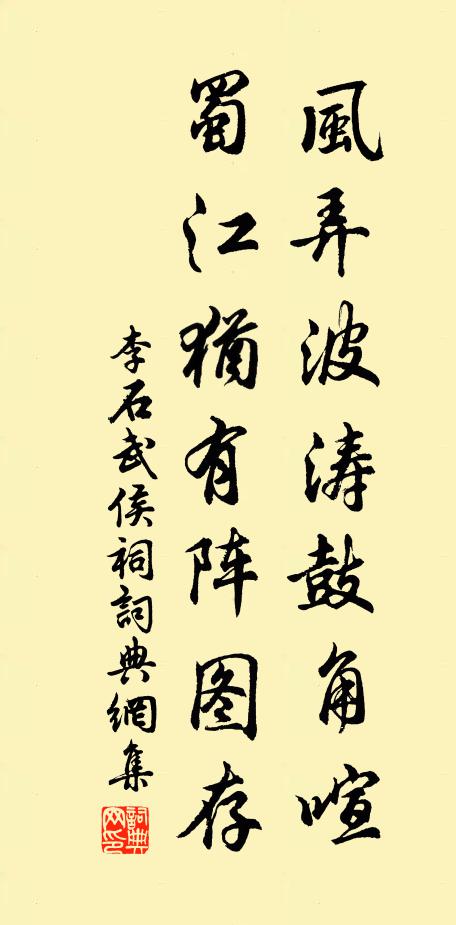 風弄波涛鼓角喧
蜀江猶有阵图存
李石武侯祠詞典網集
詞典网印